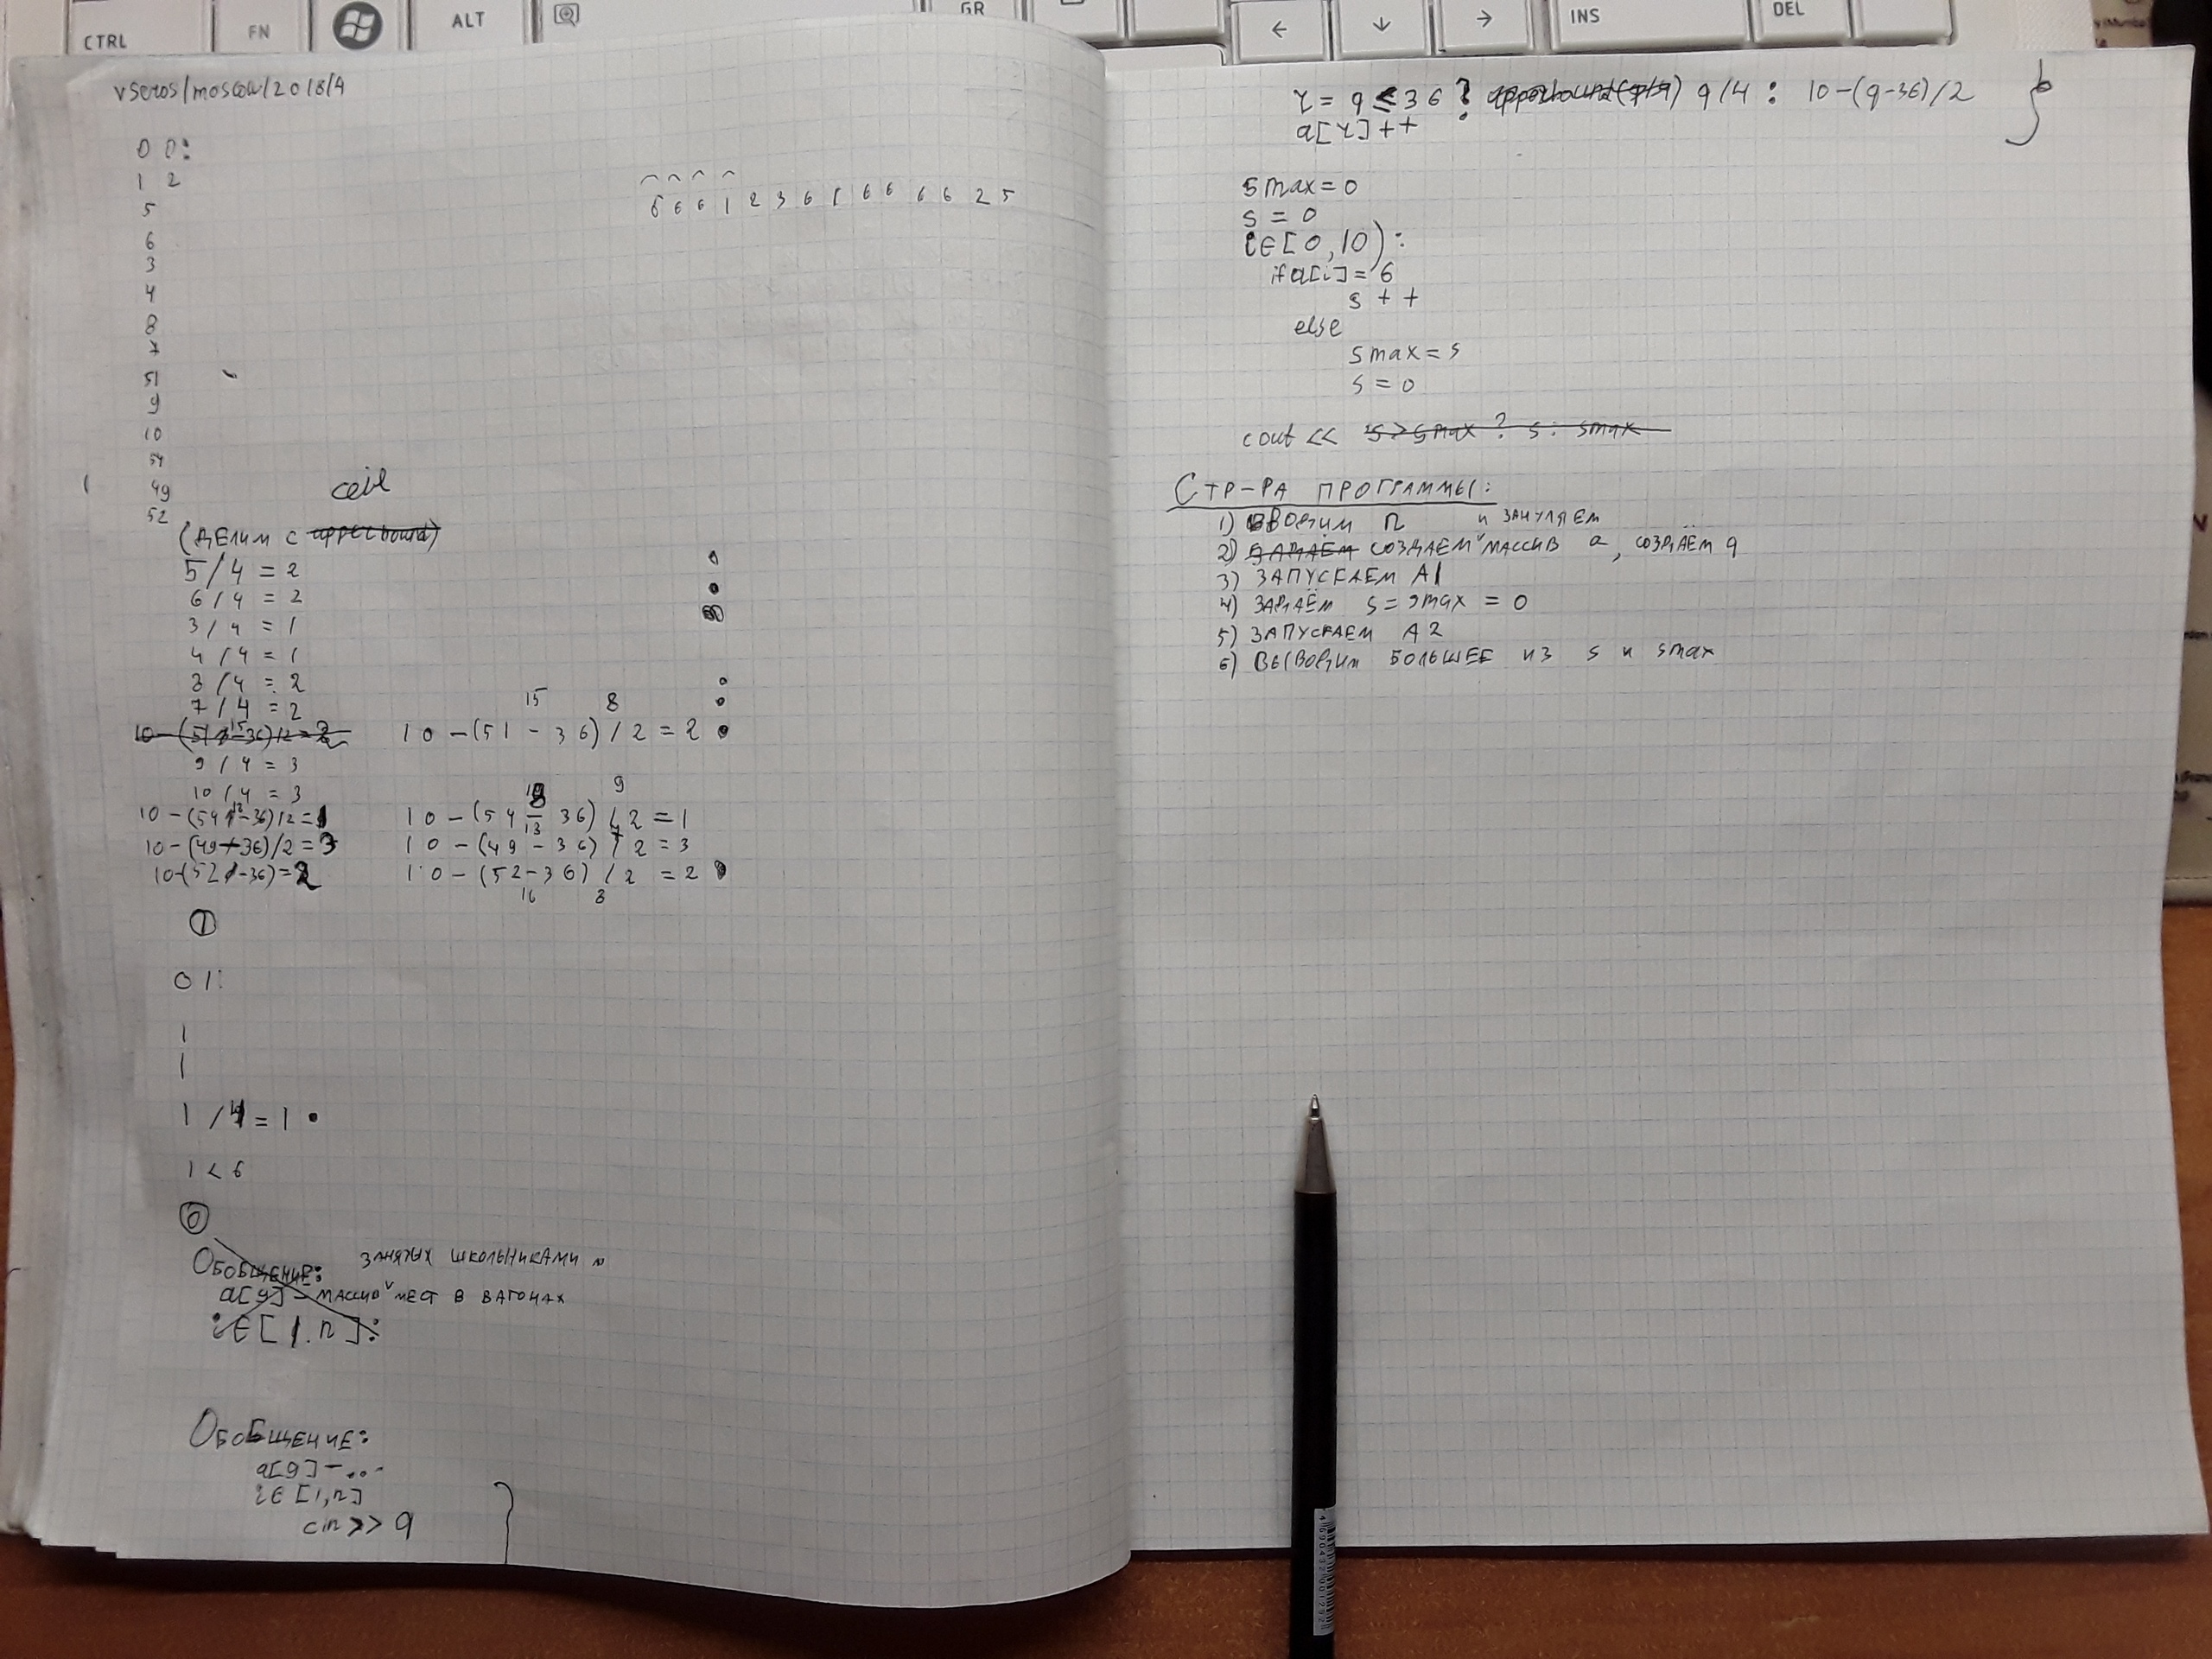 CTRL
FN
ALT
GR
INS
DEL
vseros/moscow/2018/4
0 0:
1 2
5
6
3
4
8
7
51
9
10
54
49
52
6 6 6 1 2 3 6 1 6 6 6 6 2 5
ceil
(ДЕЛИМ С upperbound)
5/4 = 2
6/4 = 2
3/4 = 1
4/4 = 1
8/4 = 2
7/4 = 2
15 8
10-(51-36)/2=2 10-(51-36)/2=2
9/4 = 3
10/4 = 3
18 9
10-(54-36)/2=1 10-(54-36)/2=1
13 7
10-(49-36)/2=3 10-(49-36)/2=3
10-(52-36)=2 10-(52-36)/2=2
16 8
7
0 1:
1
1
1/4=1
1<6
0
ОБОБЩЕНИЕ: ЗАНЯТЫХ ШКОЛЬНИКАМИ
a[9] - МАССИВ МЕСТ В ВАГОНАХ
i∈[1.n]:
ОБОБЩЕНИЕ:
a[9] - ...
i∈[1,n]
cin >> q
r = q ≤ 36 ? upperbound(q/4) q/4 : 10-(q-36)/2
a[r]++
smax=0
s=0
i∈[0,10):
if a[i]=6
s++
else
smax=s
s=0
cout << s>smax ? s : smax
СТР-РА ПРОГРАММЫ:
1) ВВОДИМ n
и ЗАНУЛЯЕМ
2) ЗАДАЁМ СОЗДАЁМ МАССИВ a, СОЗДАЁМ q
3) ЗАПУСКАЕМ A1
4) ЗАДАЁМ s=smax=0
5) ЗАПУСКАЕМ A2
6) ВЫВОДИМ БОЛЬШЕЕ ИЗ s и smax